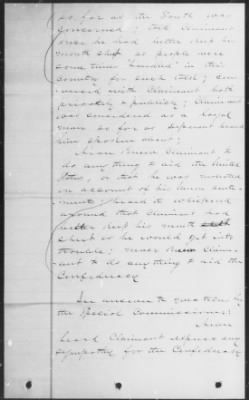 so far as the South was
concerned; told Claimant
once he had better keep his
mouth shut as people were
some times "hunded" in this
county for such talk; con
versed with Claimant both
privately & publicly; Claimant
was considered as a loyal
man so far as deponent heard
him spoken about;
Never knew Claimant to
do anything to aid the United
States, or that he was molested
on account of his Union senti-
ments; heard it whispered
around that Claimant had
better keep his mouth
shut or he would get into
trouble; never knew Claim-
ant to do anything to aid the
Confederacy
In answer to questions by
the Special Commissioner:
Never
heard Claimant express any
sympathy for the Confederacy